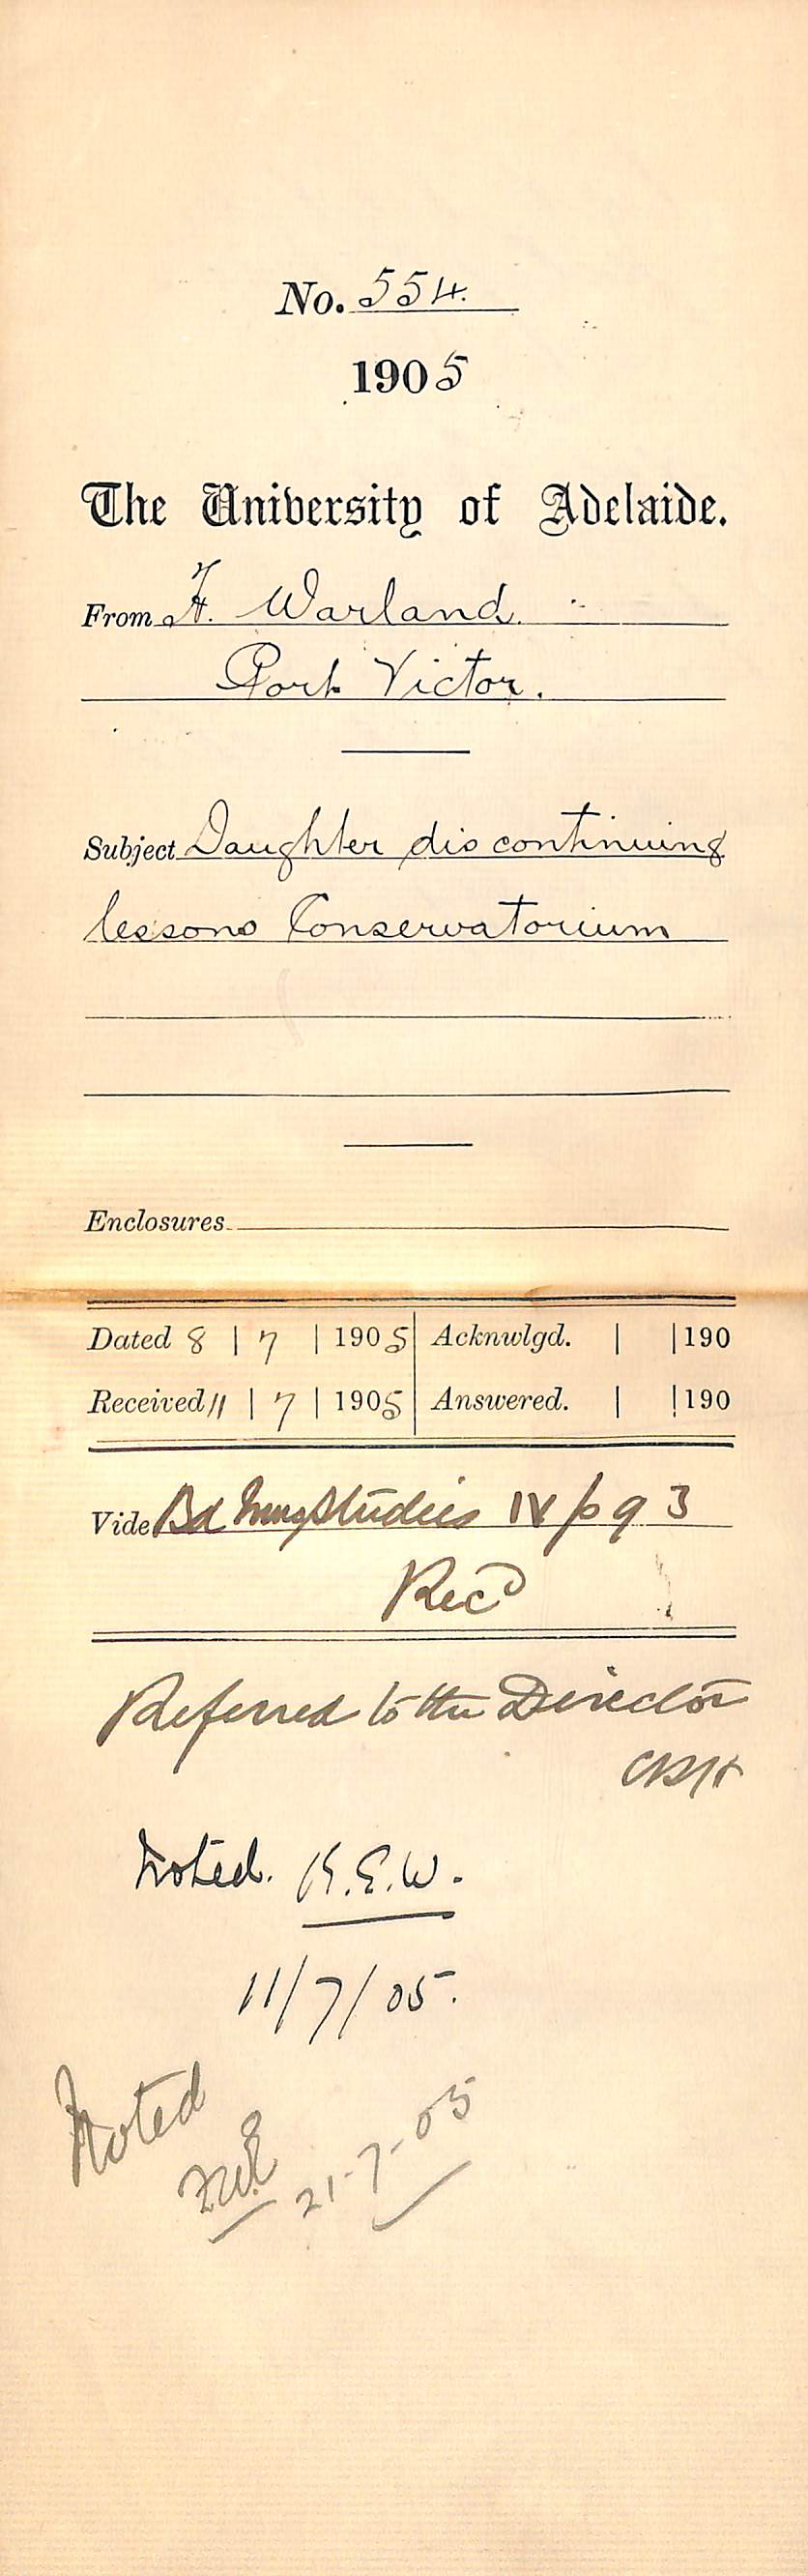 No. 554.
1905
The University of Adelaide.
From F. Warland.
Port Victor.
Subject Daughter discontinuing
lessons Conservatorium
Enclosures
Dated 8 | 7 | 1905 Acknwlgd. | | 190
Received 11 | 7 | 1905 Answered. | | 190
Vide Bd Mus Studies IV p 93
Recd
Referred to the Director
CRH
Noted. K.E.W.
11/7/05.
Noted
21-7-05